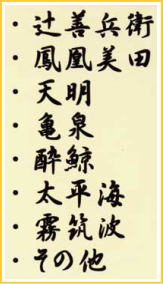 ・辻善兵衛
・鳳凰美田
・天明
・亀泉
・酔鯨
・太平海
・霧筑波
・その他